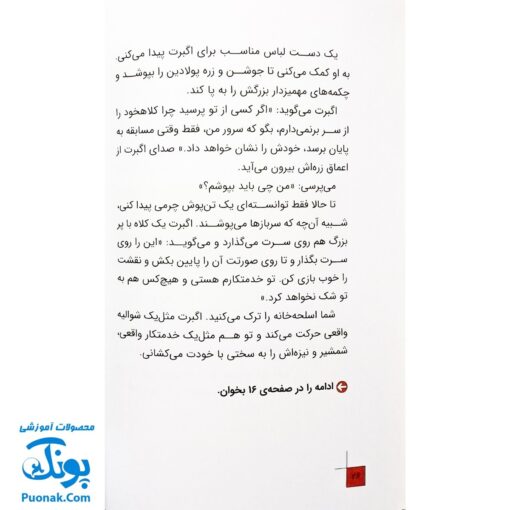 یک دست لباس مناسب برای اگبرت پیدا می‌کنی.
به او کمک می‌کنی تا جوشن و زره پولادین را بپوشد و
چکمه‌های مهمیزدار بزرگش را به پا کند.
اگبرت می‌گوید: «اگر کسی از تو پرسید چرا کلاهخود را
از سر برنمی‌دارم، بگو که سرور من، فقط وقتی مسابقه به
پایان برسد، خودش را نشان خواهد داد.» صدای اگبرت از
اعماق زره‌اش بیرون می‌آید.
می‌پرسی: «من چی باید بپوشم؟»
تا حالا فقط توانسته‌ای یک تن‌پوش چرمی پیدا کنی،
شبیه آن‌چه که سربازها می‌پوشند. اگبرت یک کلاه با پر
بزرگ هم روی سرت می‌گذارد و می‌گوید: «این را روی
سرت بگذار و تا روی صورتت آن را پایین بکش و نقشت
را خوب بازی کن. تو خدمتکارم هستی و هیچ‌کس هم به
تو شک نخواهد کرد.»
شما اسلحه‌خانه را ترک می‌کنید. اگبرت مثل یک شوالیه
واقعی حرکت می‌کند و تو هم مثل یک خدمتکار واقعی،
شمشیر و نیزه‌اش را به سختی با خودت می‌کشانی.
ادامه را در صفحه‌ی ۱۶ بخوان.
محصولات آموزشی
پونک
Puonak.Com